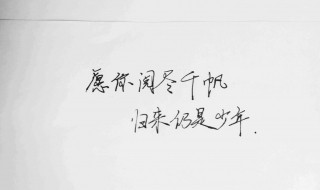 愿你阅尽千帆
归来仍是少年.